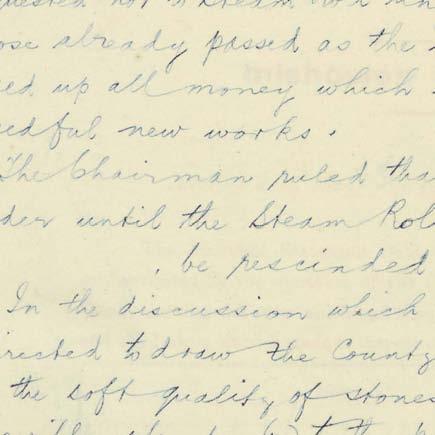 not a Steam
ose already passed as the
ed up all money which
edful new works.
The Chairman ruled tha
der until the Steam Rol
be rescinded
In the discussion which
irected to draw the County
the soft quality of stones
to the